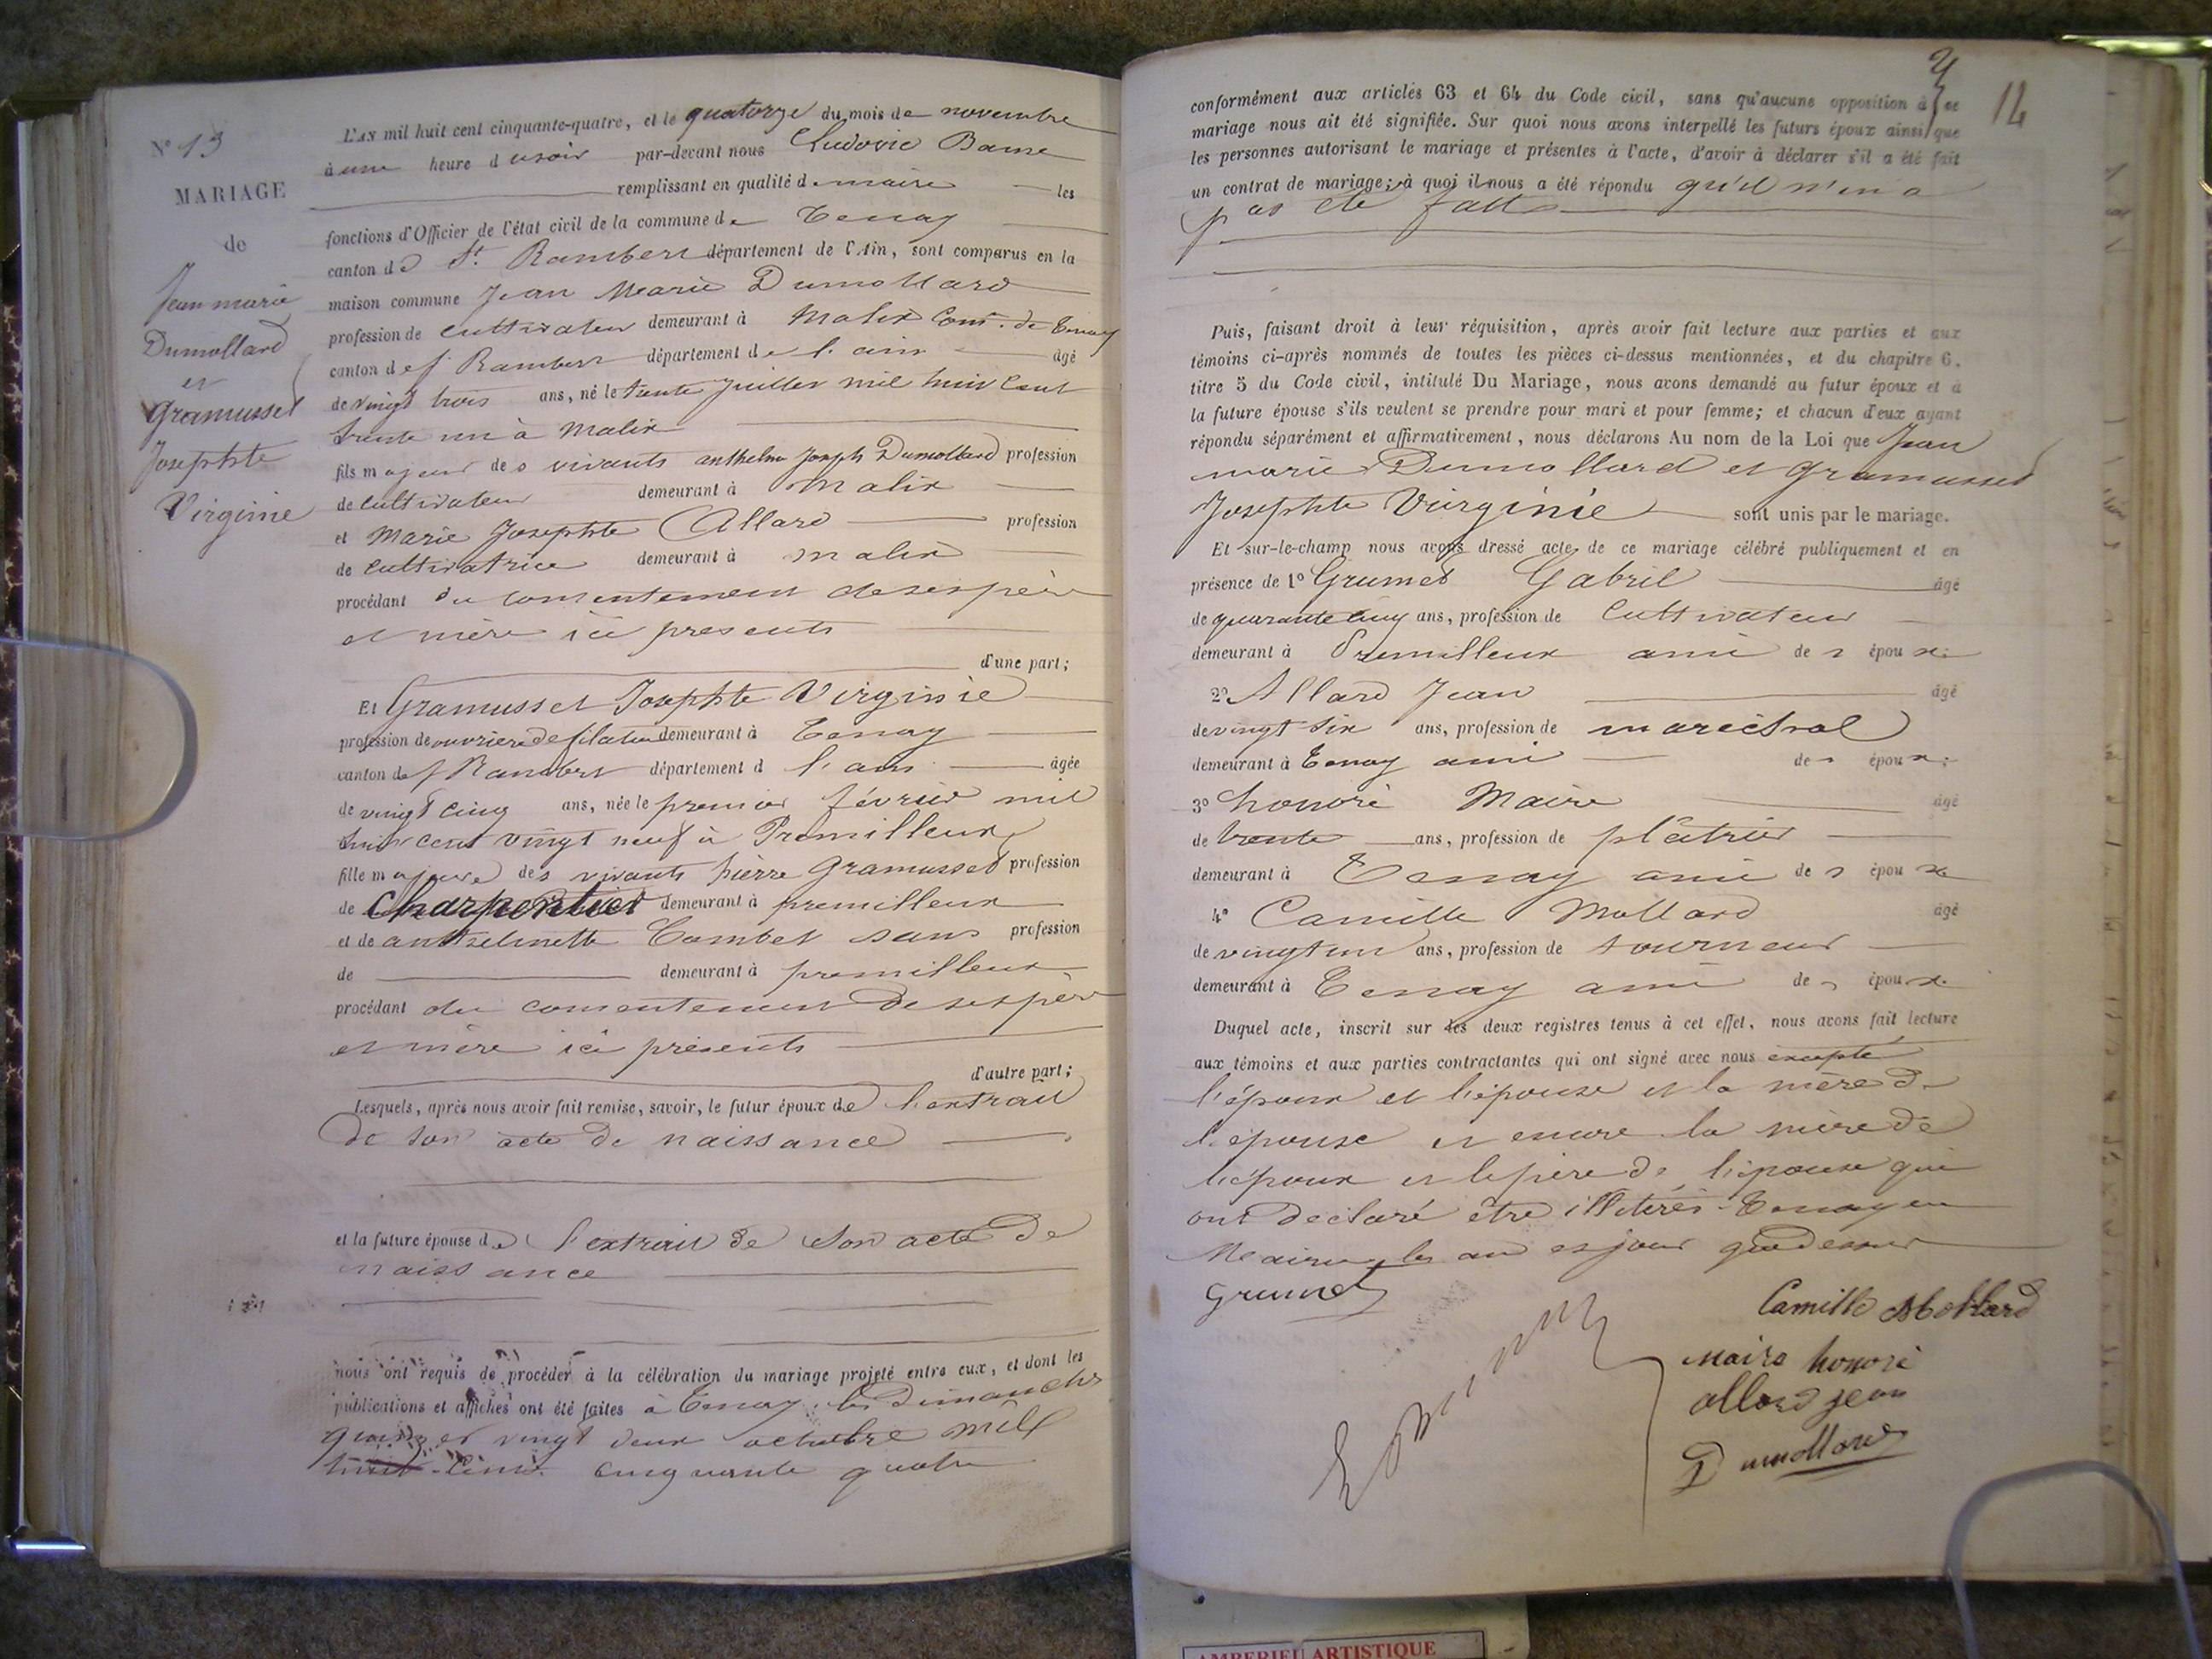 N° 13
MARIAGE
de
Jean marie
Dumollard
et
Gramusset
Josephte
Virginie
L'AN mil huit cent cinquante-quatre, et le quatorze du mois de novembre
à une heure d usoir par-devant nous Ludovic
remplissant en qualité de maire les
fonctions d'Officier de l'état civil de la commune de Tenay
canton de St. Rambert département de l'Ain, sont comparus en la
maison commune Jean Marie Dumollard
profession de cultivateur demeurant à Malix Com. de Tenay
canton de St Rambert département de l'ain âgé
de vingt trois ans, né le trente juillet mil huit Cent
trente un à Malix
fils majeur des vivants anthelme Joseph Dumollard profession
de cultivateur demeurant à Malix
et Marie Josephte Allard profession
de cultivatrice demeurant à malix
procédant du consentement de ses père
et mère ici presents
d'une part;
Et Gramusset Josephte Virginie
profession de ouvriere de filature demeurant à Tenay
canton de St Rambert département d l'ain âgée
de vingt cinq ans, née le premier février mil
huit cent vingt neuf à Premilleux
fille majeure des vivants pierre Gramusset profession
de Charpentier demeurant à premilleux
et de anthelmette Combet sans profession
de demeurant à premilleux
procédant du consentement de ses père
et mère ici présents
d'autre part;
Lesquels, après nous avoir fait remise, savoir, le futur époux de l'extrait
de son acte de naissance
et la future épouse de l'extrait de son acte de
naissance
nous ont requis de procéder à la célébration du mariage projeté entre eux, et dont les
publications et affiches ont été faites à Tenay les Dimanches
quinze et vingt deux octobre mil
huit-cent cinquante quatre
14
conformément aux articles 63 et 64 du Code civil, sans qu'aucune opposition à ce
mariage nous ait été signifiée. Sur quoi nous avons interpellé les futurs époux ainsi que
les personnes autorisant le mariage et présentes à l'acte, d'avoir à déclarer s'il a été fait
un contrat de mariage; à quoi il nous a été répondu qu'il n'en a
pas été fait
Puis, faisant droit à leur réquisition, après avoir fait lecture aux parties et aux
témoins ci-après nommés de toutes les pièces ci-dessus mentionnées, et du chapitre 6,
titre 5 du Code civil, intitulé Du Mariage, nous avons demandé au futur époux et à
la future épouse s'ils veulent se prendre pour mari et pour femme; et chacun d'eux ayant
répondu séparément et affirmativement, nous déclarons Au nom de la Loi que Jean
marie Dumollard et Gramusset
Josephte Virginie sont unis par le mariage.
Et sur-le-champ nous avons dressé acte de ce mariage célébré publiquement et en
présence de 1° Grumet Gabril âgé
de quarante cinq ans, profession de Cultivateur
demeurant à Premilleux ami des époux.
2° Allard Jean âgé
de vingt six ans, profession de marechal
demeurant à Tenay ami des époux.
3° honoré Maire âgé
de trente ans, profession de plâtrier
demeurant à Tenay ami des époux
4° Camille Mollard âgé
de vingt un ans, profession de tourneur
demeurant à Tenay ami des époux.
Duquel acte, inscrit sur les deux registres tenus à cet effet, nous avons fait lecture
aux témoins et aux parties contractantes qui ont signé avec nous excepté
l'époux et l'épouse et la mère de
l'épouse et encore la mère de
l'époux et le père de l'épouse qui
ont declaré être illiterés Tenay en
Mairie, les an et jour que dessus
Grumet
Camille Mollard
Maire honoré
allard jean
Dumollard
AMBERIEU ARTISTIQUE